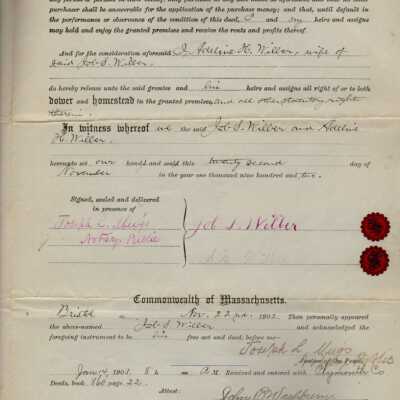 purchaser shall be answerable for the application of the purchase money; and that, until default in
the performance or observance of the condition of this deed, I and my heirs and assigns
may hold and enjoy the granted premises and receive the rents and profits thereof.
And for the consideration aforesaid I, Adeline H. Wilber, wife of
said Job S. Wilber
do hereby release unto the said grantee and his heirs and assigns all right of or to both
dower and homestead in the granted premises, and all other statutory rights
therein.
In witness whereof we the said Job S. Wilber and Adeline
H. Wilber
hereunto set our hands and seals this twenty second day of
November in the year one thousand nine hundred and two.
Signed, sealed and delivered
in presence of
Joseph L.
Notary Public
Job S. Wilber
Commonwealth of Massachusetts.
Bristol ss. Nov. 22nd. 1902. Then personally appeared
the above-named Job S. Wilber and acknowledged the
foregoing instrument to be his free act and deed; before me—
Joseph L.
Justice of the Peace.
Jan 14 1903. 8 h A M. Received and entered with Plymouth Co
Deeds, book 860 page 22.
Attest:
John Washburn